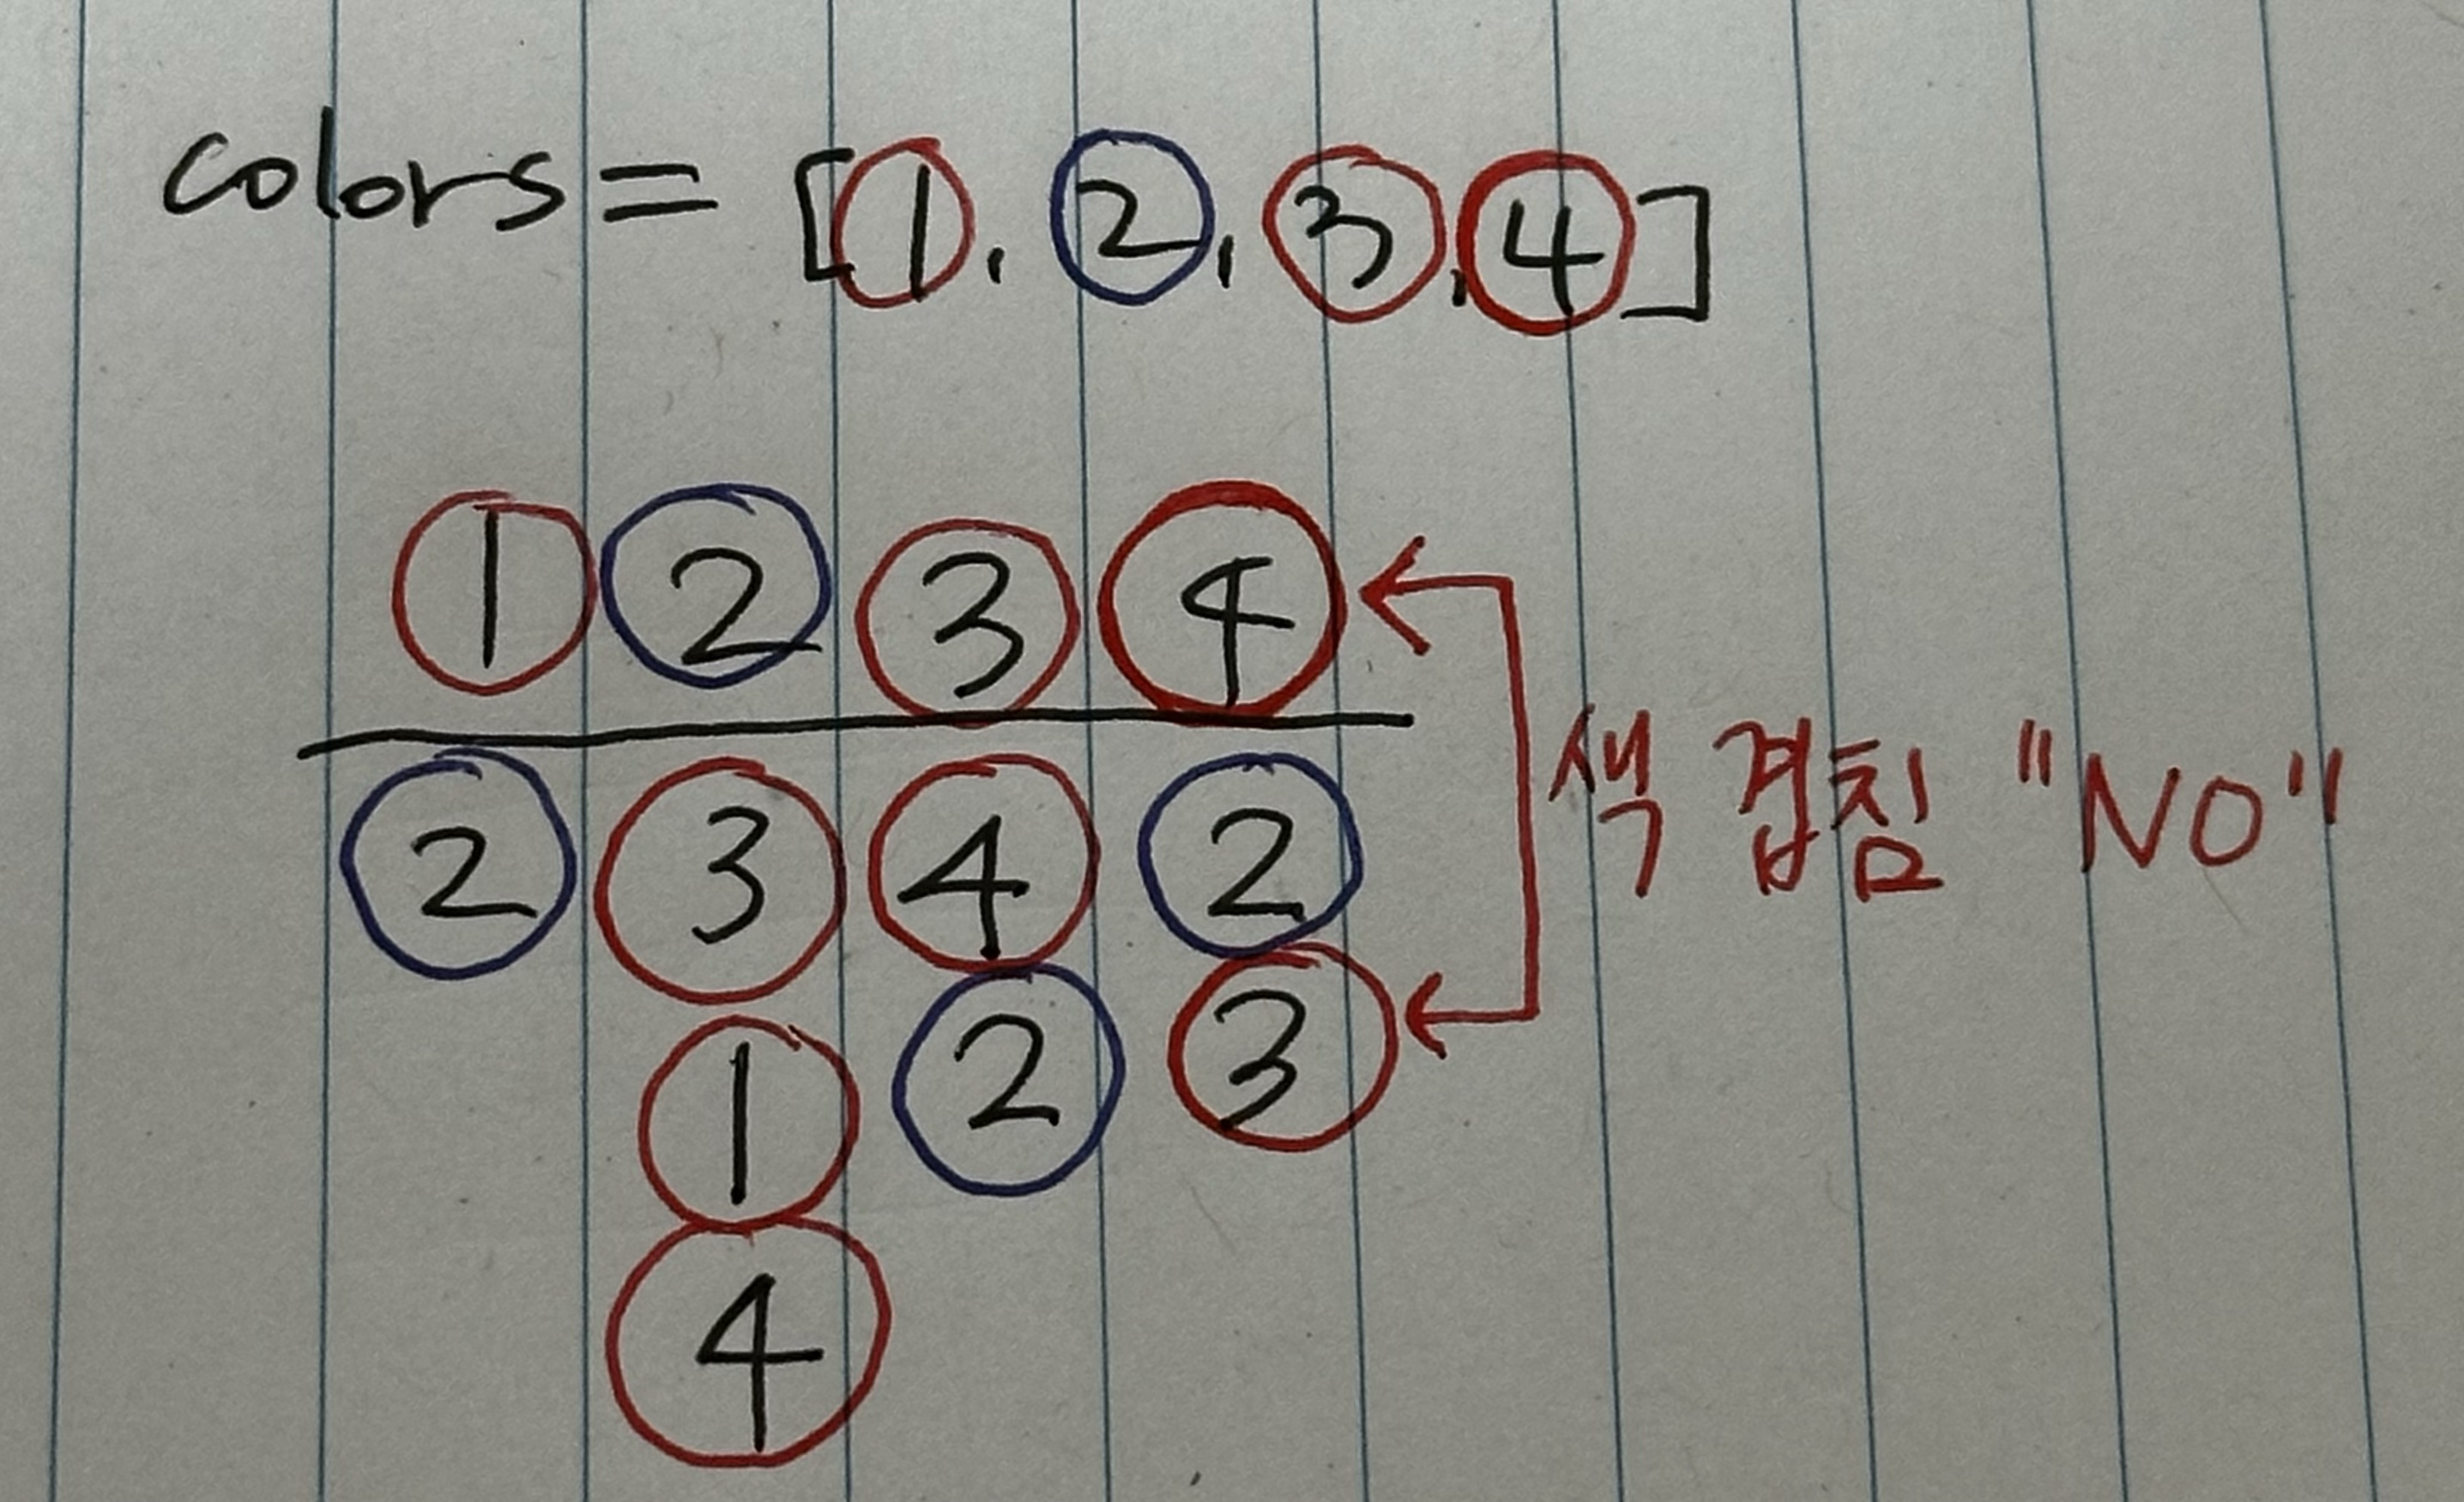 colors = [1, 2, 3, 4]
1 2 3 4
2 3 4 2
1 2 3
4
색 겹침 "NO"